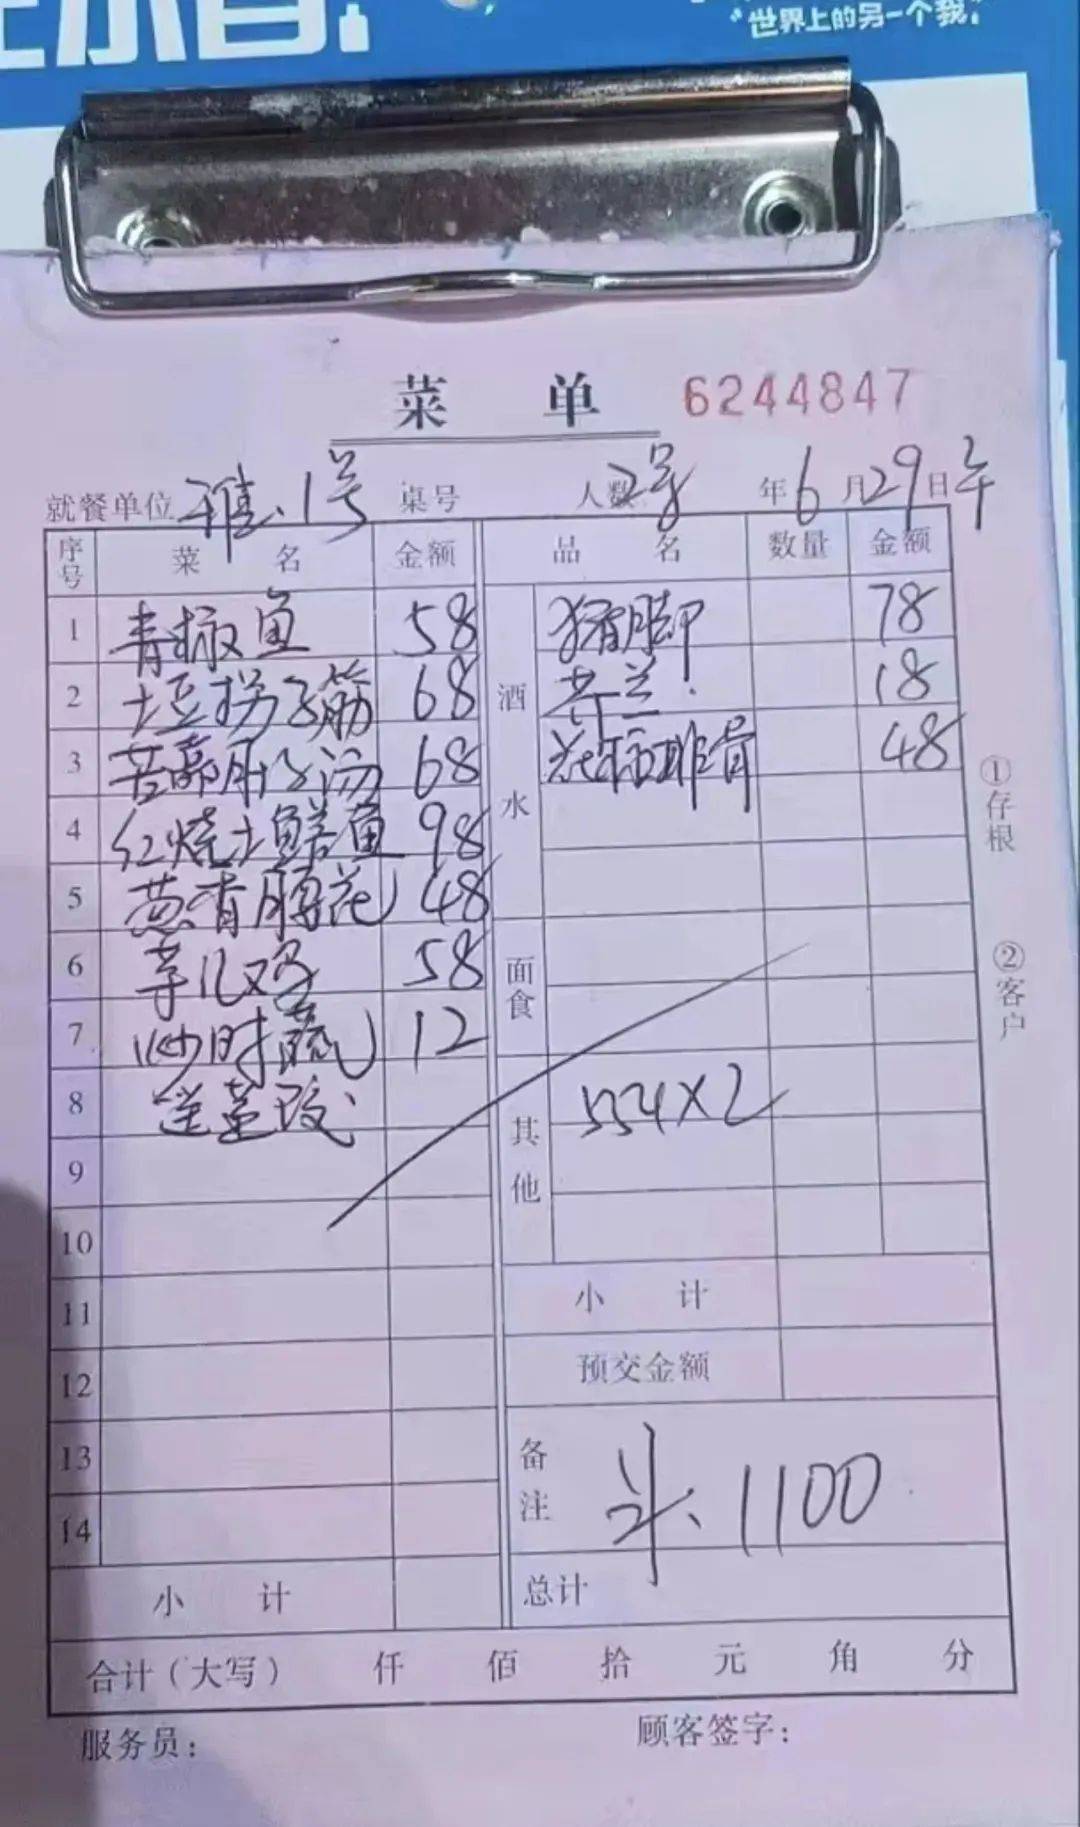 "世界上的另一个我."
菜 单 6244847
就餐单位 雅.1号 桌号 人数2号 年6月29日午
序号 菜 名 金额 品 名 数量 金额
1 青椒鱼 58 酒水 猪脚 78
2 土豆拐子筋 68 芥兰. 18
3 汤 68 排骨 48
4 红烧土鳝鱼 98
5 葱香腰花 48
6 芋儿鸡 58 面食
7 炒时蔬 12
8 其他 554×2
9
10
11 小 计
12 预交金额
13 备注 1100
14
小 计 总计
合计(大写) 仟 佰 拾 元 角 分
服务员: 顾客签字:
①存根
②客户